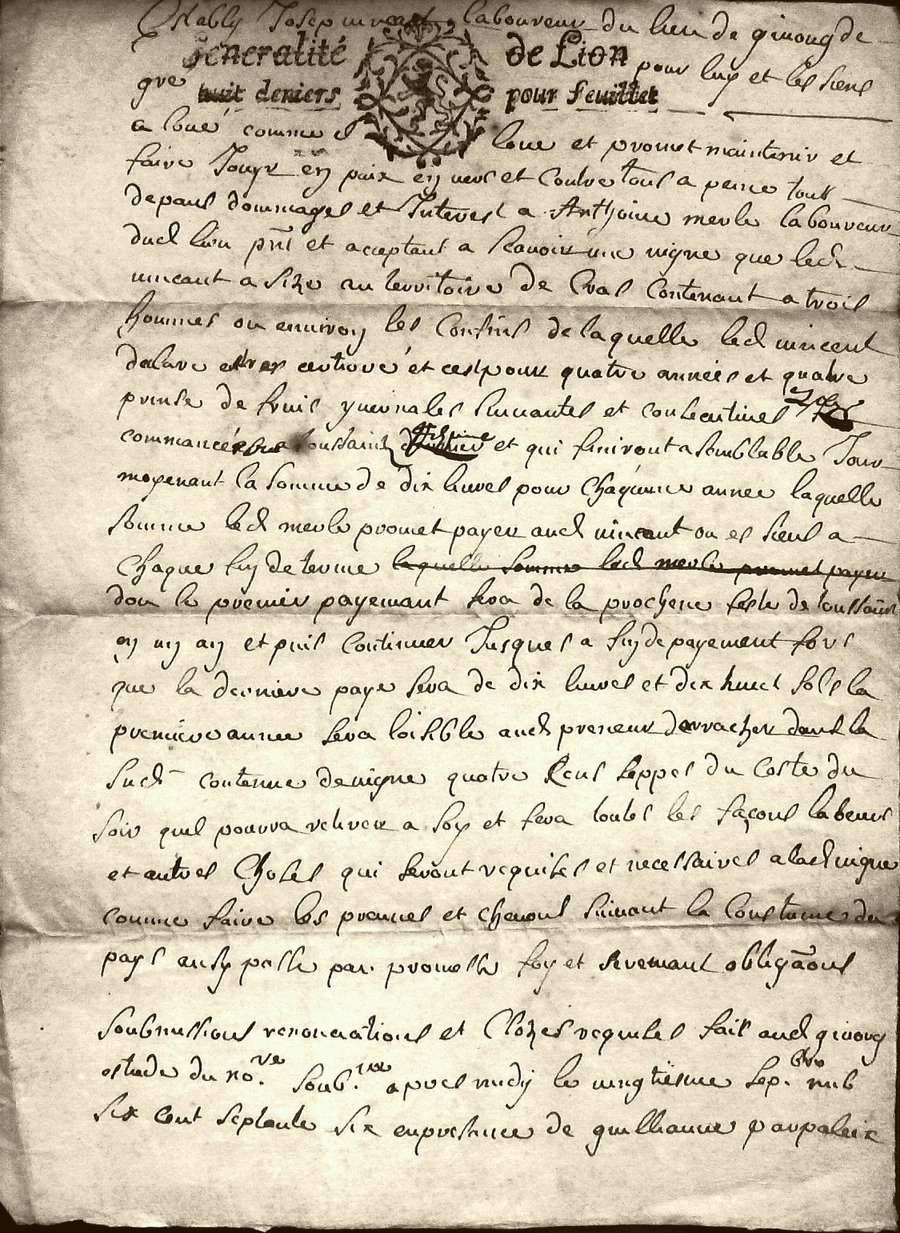 Estably Josep vincent laboureur du lieu de givourg de
Généralité de Lion
huit deniers pour feuillet
gre pour luy et les siens
a loué comme il loue et promet maintenir et
faire Jouyr en paix envers et contre tous a peine tous
depans dommages et Interest a Anthoine merle laboureur
dud lieu pnt et acceptant a scavoir une vigne que led
vincant a size au territoire de Cras Contenant a trois
hommes ou environ les Confins de laquelle led vincent
declare et cest pour quatre années et quatre
prinse de fruis yvernales suivantes et
commancé toussaint et qui finiront a semblable Jour
moyenant la somme de dix livres pour chaqune annee laquelle
somme led merle promet payer aud vincant ou es siens a
chaque fin de terme laquelle somme led merle promet payer
don le premier payemant sera de la prochene feste de toussaint
en un an et puis continuer Jusques a fin de payement fors
que la derniere paye sera de dix livres et dix huict sols la
premiere annee sera loisible aud preneur darracher dans la
sud contenue de vigne quatre seppes du coste du
soir quil pourra retirer a soy et fera toutes les façons labeurs
et autres choses qui seront requises et necessaires a lad vigne
comme faire les et suivant la Coustume du
pays ainsy passe par promesse foy et serement obligaons
soubmissions renonciations et Clozes requises fait aud givourg
estude du no.re soub.ne apres midy le vingtiesme sep.bre mil
six cent septante six en presence de guilliaume